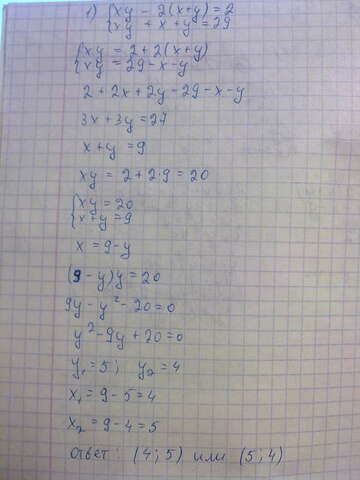 1) {xy - 2(x+y) = 2
{xy + x + y = 29
{xy = 2+2(x+y)
{xy = 29-x-y
2+2x+2y-29-x-y
3x+3y=27
x+y=9
xy = 2+2·9=20
{xy=20
{x+y=9
x=9-y
(9-y)y=20
9y-y²-20=0
y²-9y+20=0
y₁=5; y₂=4
x₁=9-5=4
x₂=9-4=5
ответ: (4;5) или (5;4)